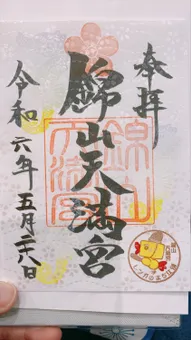 奉拝
錦山天満宮
令和六年五月二十八日
錦山天満宮